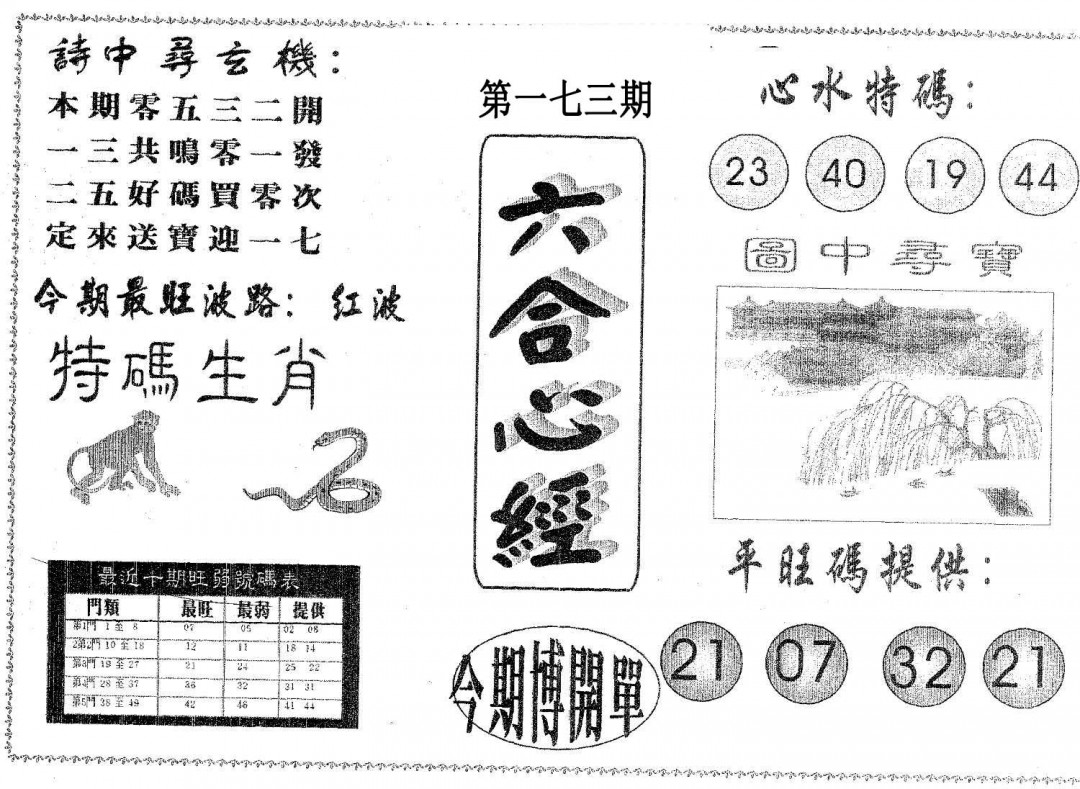 詩中尋玄機：
本期零五三二開
一三共鳴零一發
二五好碼買零次
定來送寶迎一七
今期最旺波路： 红波
特碼生肖
最近十期旺弱號碼表
門類 最旺 最弱 提供
第1門 1 至 8 07 05 02 08
第2門 10 至 18 12 11 18 14
第3門 19 至 27 21 24 25 22
第4門 28 至 37 36 32 31 31
第5門 38 至 49 42 46 41 44
第一七三期
六合心經
今期博開單
心水特碼：
23 40 19 44
圖中尋寶
平旺碼提供：
21 07 32 21